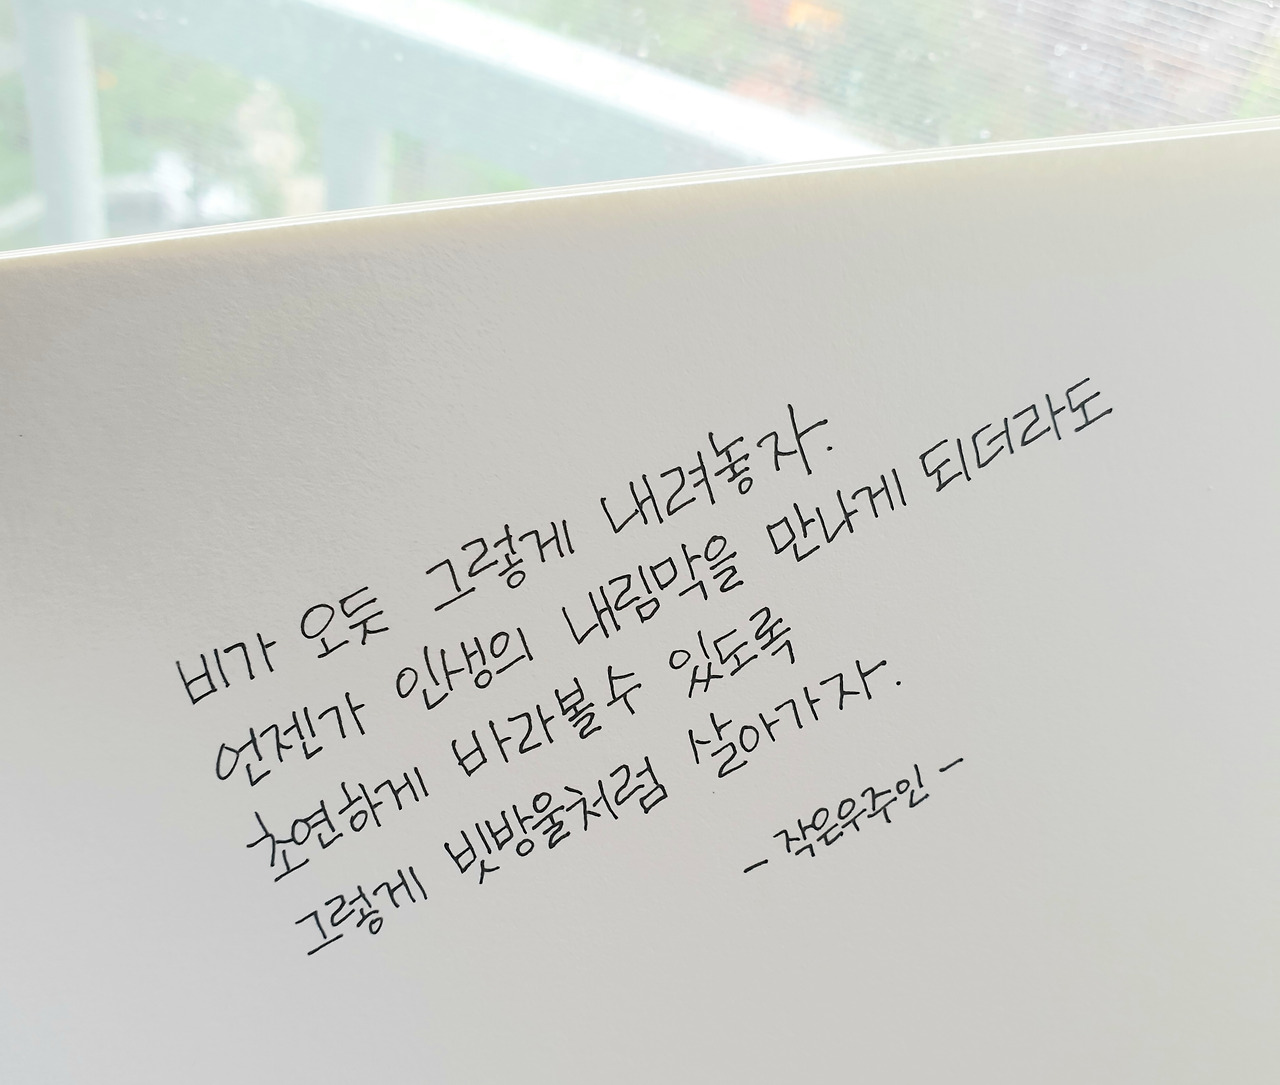 비가 오듯 그렇게 내려놓자.
언젠가 인생의 내림막을 만나게 되더라도
초연하게 바라볼수 있도록
그렇게 빗방울처럼 살아가자.
- 작은우주인 -